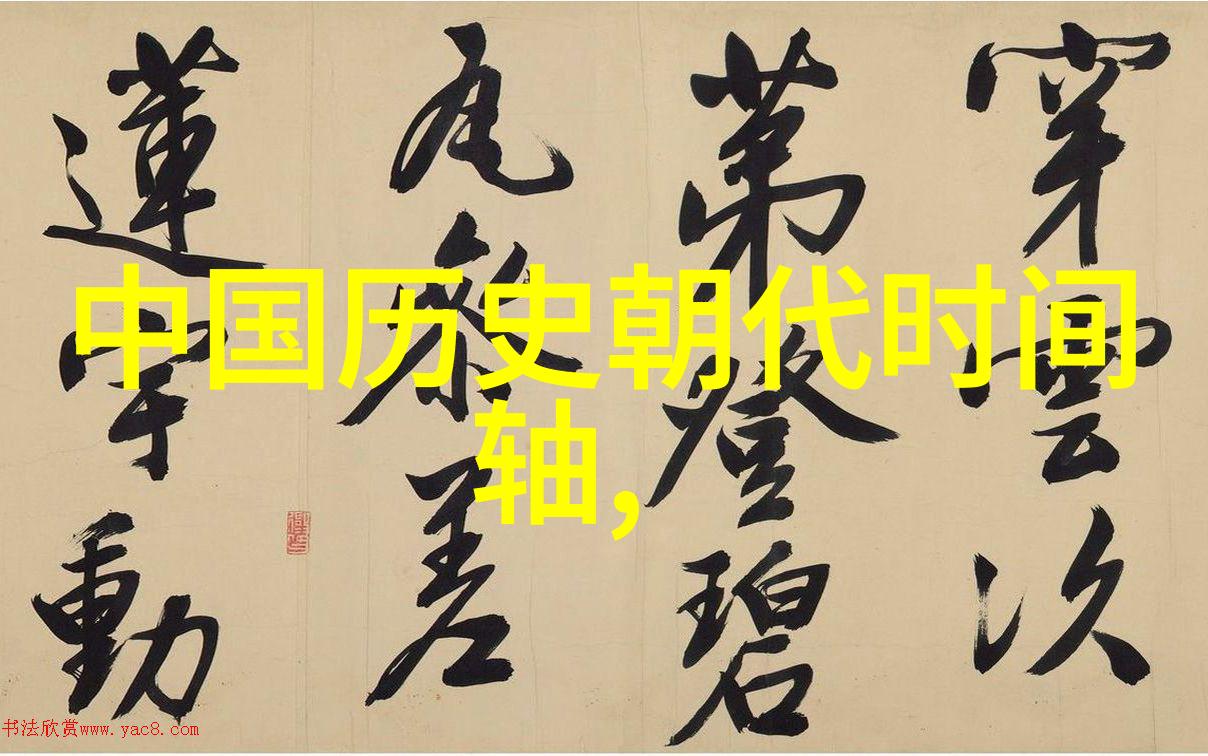 穿雲次
第登碧
瓦參差
蓮宇動
中国历史朝代时间
轴,
书法欣赏www.yac8.com